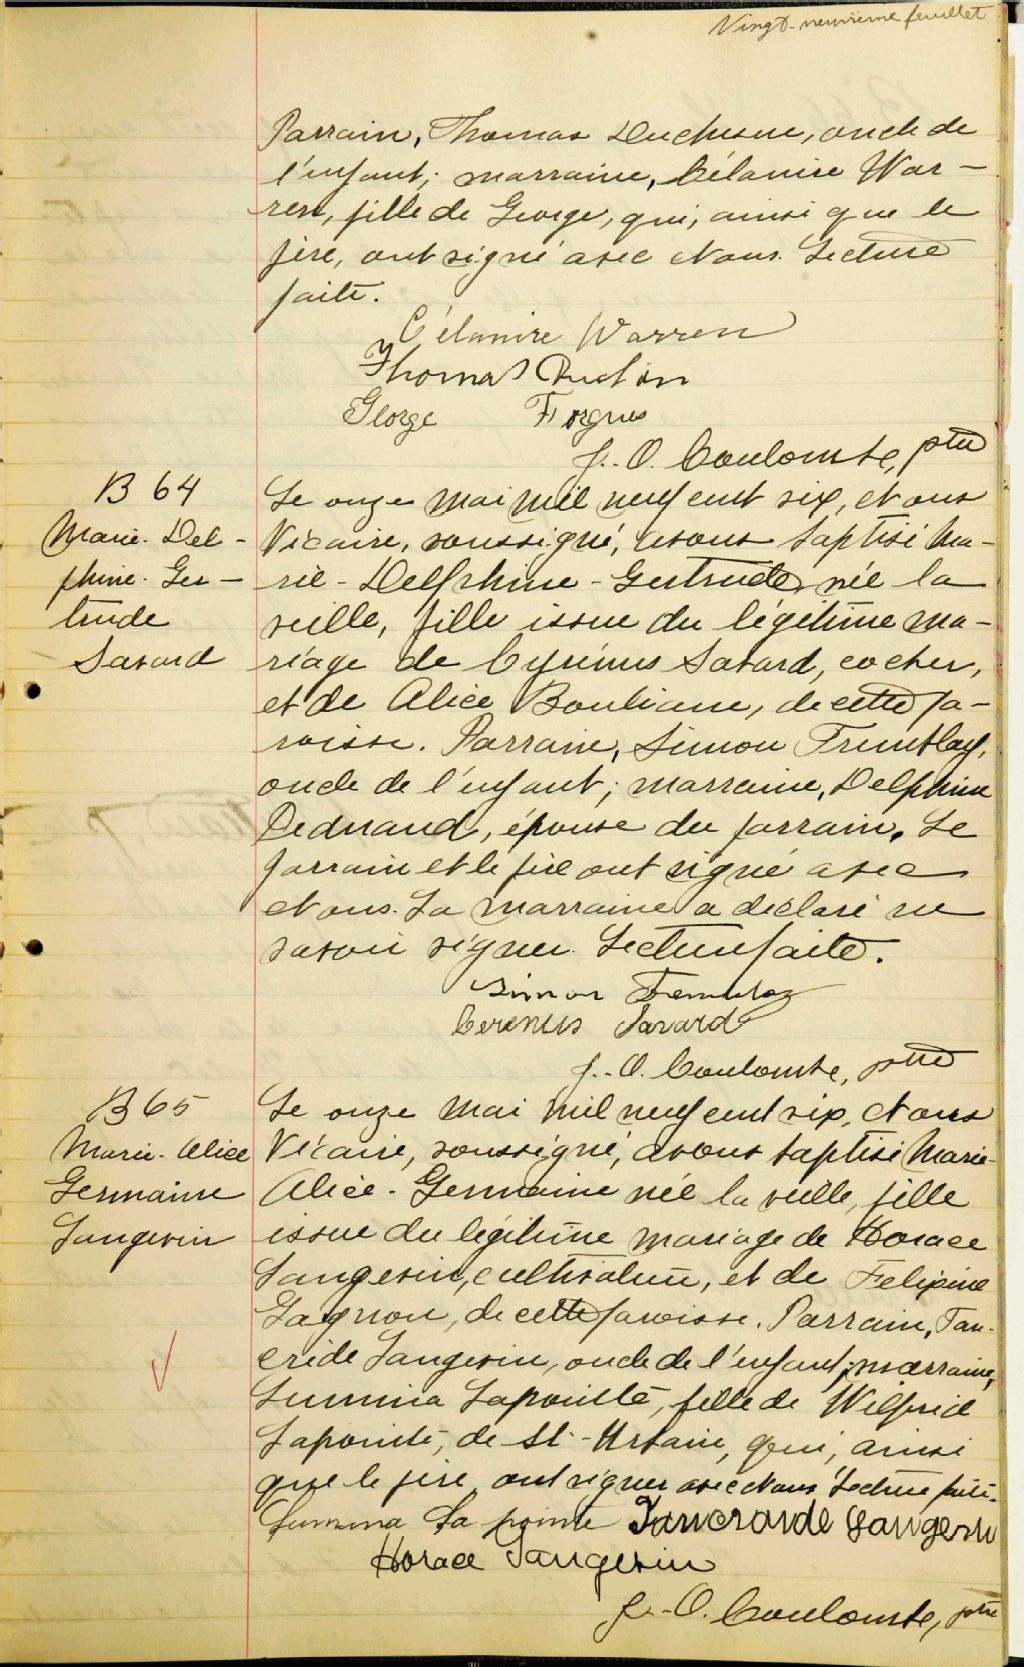 Vingt-neuvième feuillet
Parrain, Thomas Duchesne, oncle de
l'enfant; marraine, Célanire War-
ren, fille de George, qui, ainsi que le
père, ont signé avec Nous. Lecture
faite.
Célanire Warren
Thomas
George Forgues
J.-O. Coulombe, ptre
B 64
Marie-Del-
phine-Ger-
trude
Savard
Le onze mai mil neuf cent six, Nous
Vicaire, soussigné, avons baptisé Ma-
rie-Delphine-Gertrude, née la
veille, fille issue du légitime ma-
riage de Cyrénus Savard, cocher,
et de Alice Bouliane, de cette pa-
roisse. Parrain, Simon Tremblay,
oncle de l'enfant; marraine, Delphine
Dednaud, épouse du parrain. Le
parrain et le père ont signé avec
Nous. La marraine a déclaré ne
savoir signer. Lecture faite.
Simon Tremblay
Cerenus Savard
J.-O. Coulombe, ptre
B 65
Marie-Alice
Germaine
Langevin
Le onze mai mil neuf cent six, Nous
Vicaire, soussigné, avons baptisé Marie-
Alice-Germaine née la veille, fille
issue du légitime mariage de Horace
Langevin, cultivateur, et de Félixine
Gagnon, de cette paroisse. Parrain, Tan-
crède Langevin, oncle de l'enfant; marraine,
Lumina Lapointe, fille de Wilfrid
Lapointe, de St-Urbain, qui, ainsi
que le père, ont signer avec Nous. Lecture faite.
Lumina Lapointe Tancraide Langevin
Horace Langevin
J.-O. Coulombe, ptre